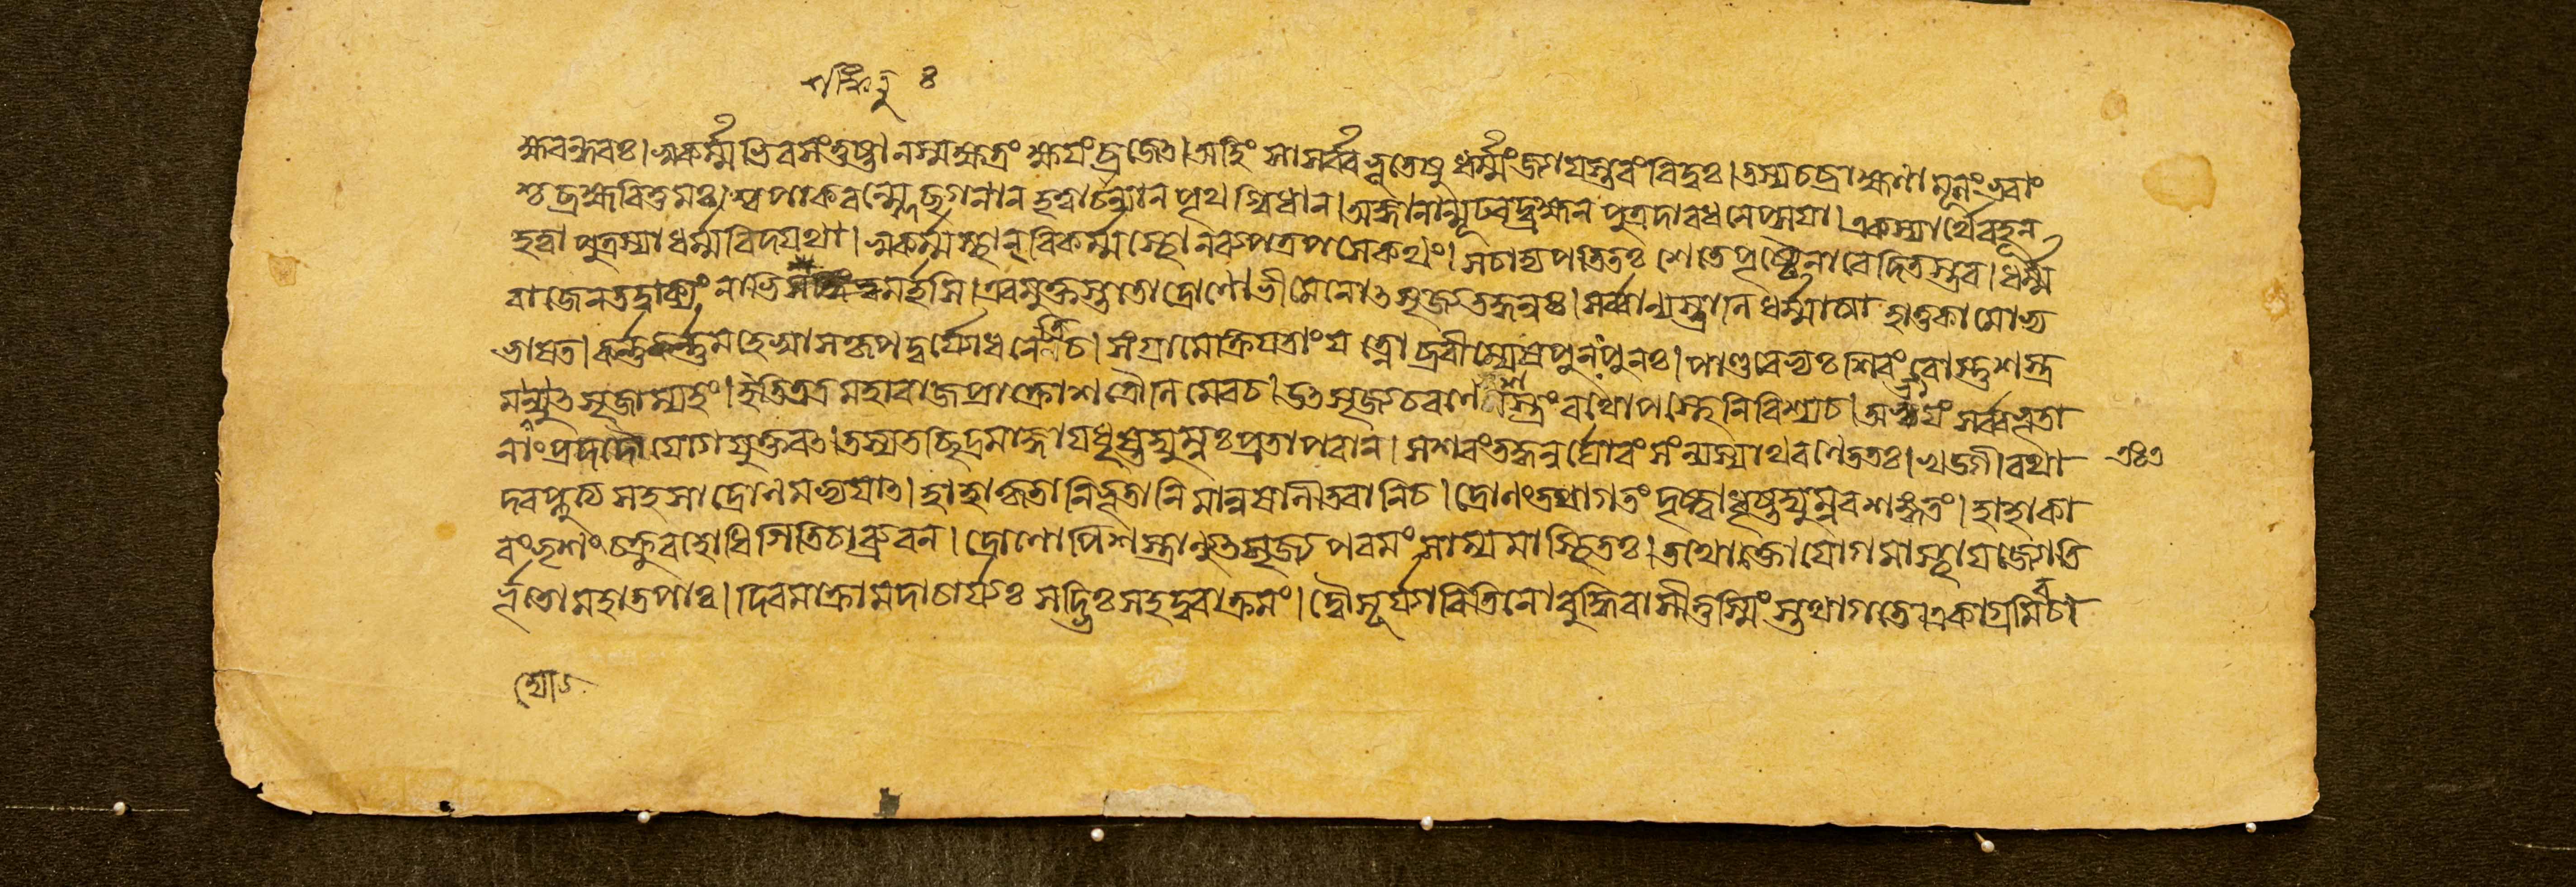 হ্মবন্ধবঃ। স্বকর্ম্মভিৰসংতুষ্টা নস্ম ক্ষত্রং ক্ষযংব্রজেৎ। অহিংসা সর্ব্বভূতেষু ধর্ম্মংজ্যাযস্তৰংবিদুঃ। তস্যচব্রাহ্মণোমূলংভবাং
শ্চব্রহ্মবিত্তমঃ। শ্বপাকবন্ম্লেচ্ছগনান হত্বাচান্যান পৃথগ্বিধান। অজ্ঞানান্মূঢবদ্ব্রহ্মন পুত্রদাৰধনেপ্সযা। একস্যার্থেবহূন
হত্বা পুত্রস্যাধর্ম্মবিদযথা। স্বকর্ম্মস্থান্ বিকর্ম্মস্থোনব্যপত্রপসেকথং। সচাদ্যপতিতঃ শেতে পৃষ্টেনাবেদিতস্তব। ধর্ম্ম
ৰাজেনতদ্বাক্যং নাতি মর্হসি। এবমুক্তস্ততোদ্রোণো ভীমেনোৎসৃজ্যতদ্ধনুঃ। সর্ব্বান্যস্ত্রানিধর্ম্মাত্মা হাতুকামোভ্য
ভাষত। কর্ন্নকর্ন্নমহেষ্বাসকৃপদুর্য্যোধনেতিচ। সংগ্রামেক্রিযতাংযত্নো ব্রবীম্যেষপুনঃপুনঃ। পাণ্ডবেভ্যঃ শিবংবোস্তুশস্ত্র
মভ্যুৎসৃজাম্যহং। ইতিতত্রমহাৰাজপ্রাক্রোশদ্রৌনিমেবচ। উৎসৃজ্যচৰণেশস্ত্রং ৰথোপস্থেনিবিশ্যচ। অভযং সর্ব্বভূতা
নাংপ্রদদৌযোগযুক্তবৎ। তস্যতচ্ছিদ্রমাজ্ঞাযধৃষ্টদ্যুম্নঃপ্রতাপবান। সশৰংতদ্ধনুর্ঘোৰংসংন্যস্যাথৰণেততঃ। খড্গীৰথা
দবপ্লুত্য সহসাদ্রোনমভ্যযাৎ। হাহাকৃতানিভূতানিমানুষানীতৰানিচ। দ্রোনংতথাগতংদৃষ্ট্বাধৃষ্টদ্যুম্নবশঙ্গতং। হাহাকা
ৰংভৃশংচক্রুৰহোধিগিতিচাব্রুবন। দ্রোণোপিশস্ত্রান্যুৎসৃজ্য পৰমং সাম্যমাস্থিতঃ। তথোক্ত্বাযোগমাস্থাযজ্যোতি
র্ভূতোমহাতপাঃ। দিবমাক্রামদাচার্য্যঃ সদ্ভিঃসহদুৰাক্রমং। দ্বৌসূর্য্যাবিতিনোবুদ্ধিৰাসীত্তস্মিংস্তথাগতে। একাগ্রমিবচা